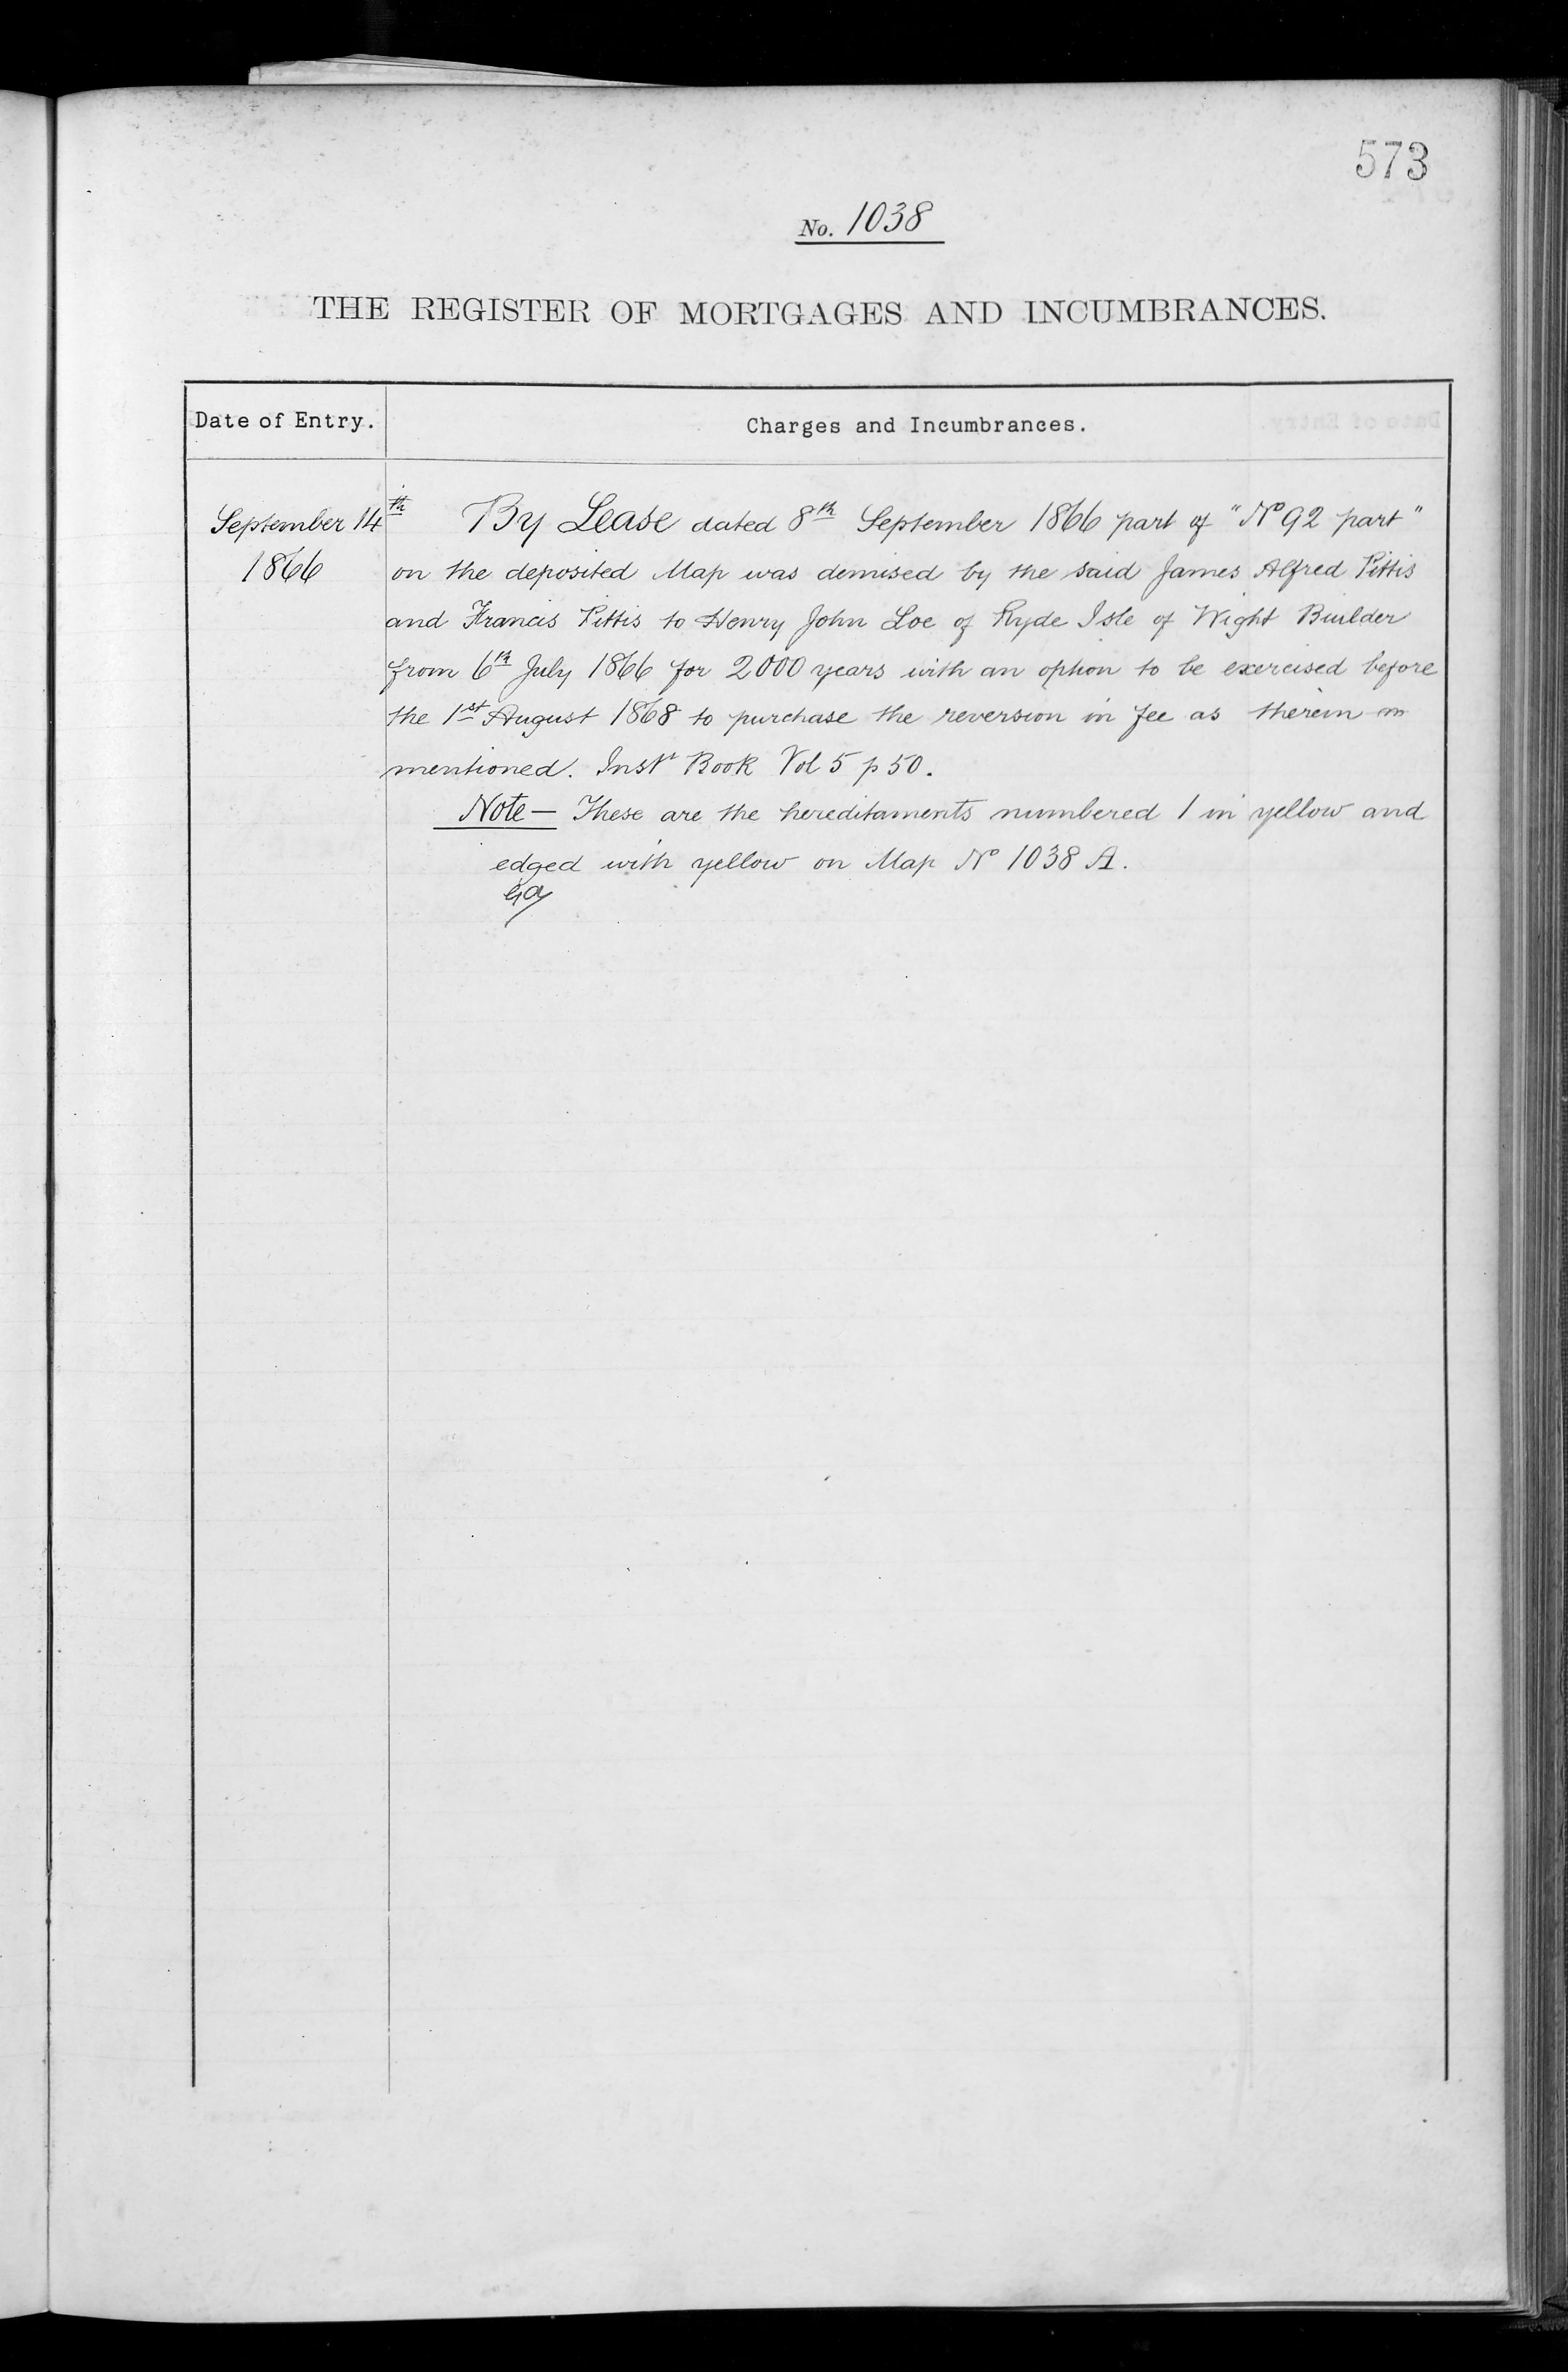 573
No. 1038
THE REGISTER OF MORTGAGES AND INCUMBRANCES.
Date of Entry.
Charges and Incumbrances.
September 14th
1866
By Lease dated 8th September 1866 part of "No 92 part"
on the deposited Map was demised by the said James Alfred Pittis
and Francis Pittis to Henry John Loe of Ryde Isle of Wight Builder
from 6th July 1866 for 2000 years with an option to be exercised before
the 1st August 1868 to purchase the reversion in fee as therein m
mentioned. Inst Book Vol 5 p 50.
Note — These are the hereditaments numbered 1 in yellow and
edged with yellow on Map No 1038 A.